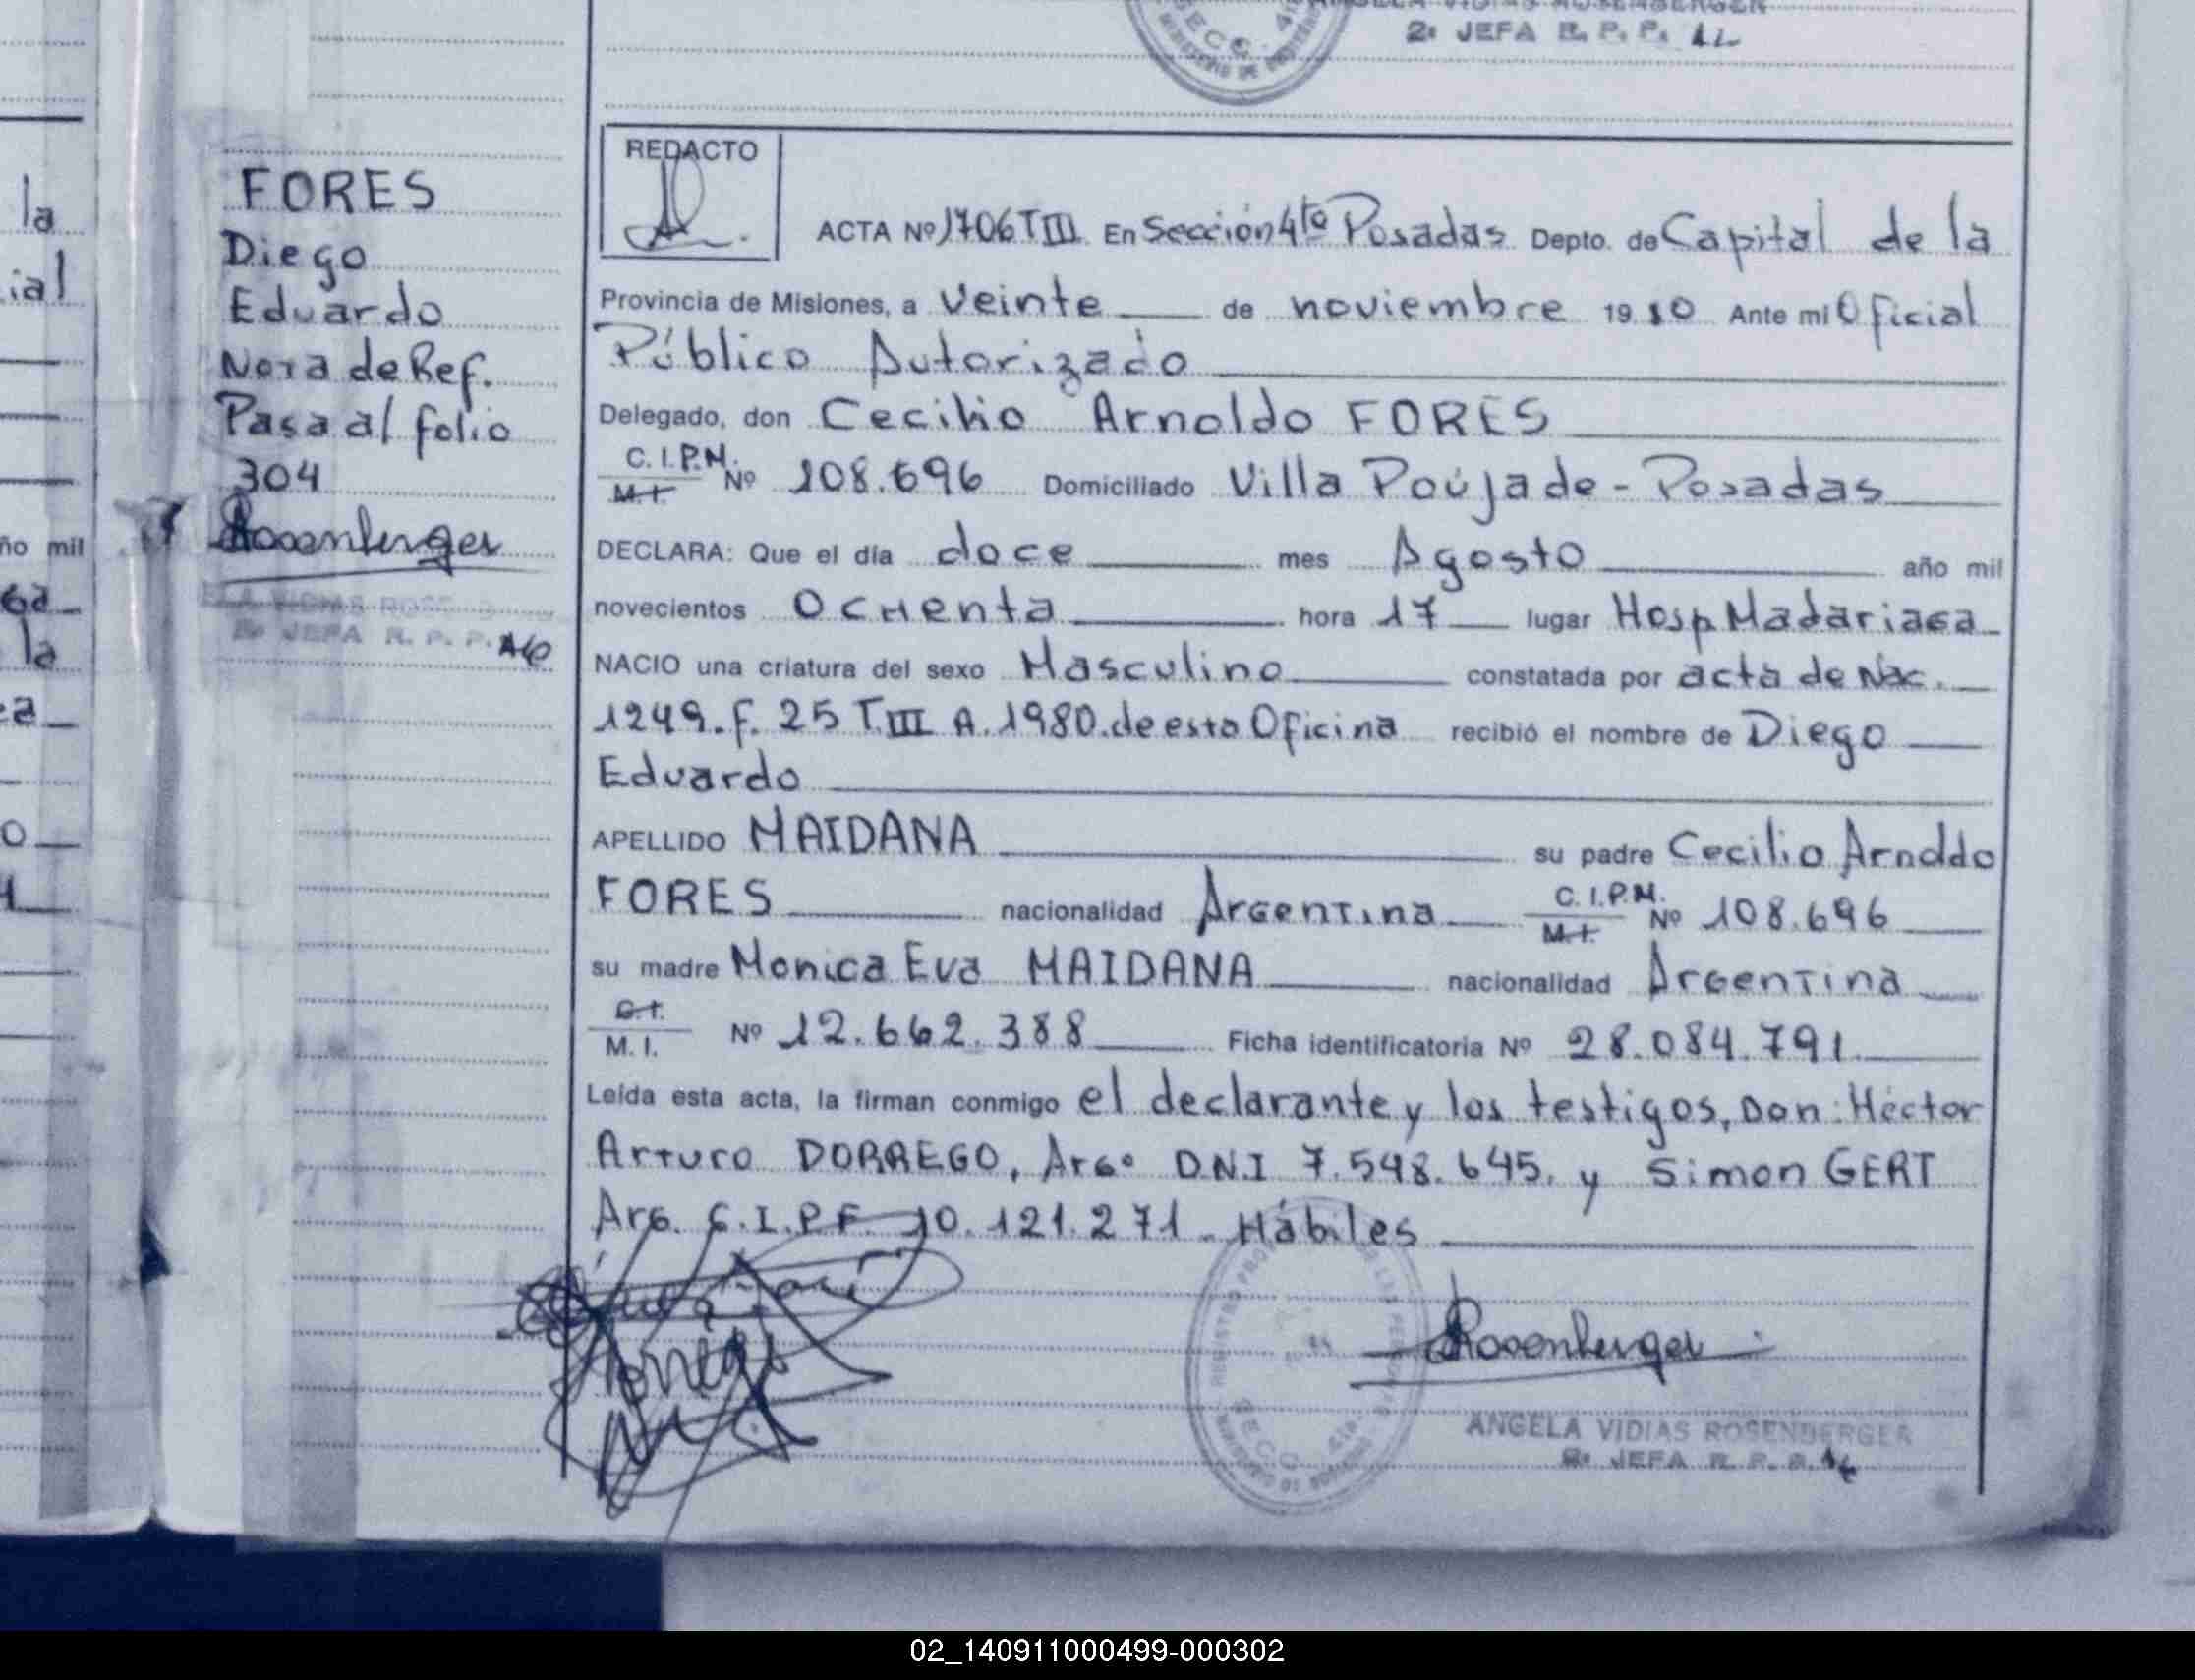 ANGELA VIDIAS ROSENBERGER
2º JEFA R. P. P.
FORES
Diego
Eduardo
Nota de Ref.
Pasa al folio
304
Rosenberger
VIDIAS
2º JEFA R. P. P.
la
ial
ño mil
la
REDACTO
ACTA Nº 1706 T III En Sección 4ta Posadas Depto. de Capital de la
Provincia de Misiones, a veinte de noviembre 19 80 Ante mi Oficial
Público Autorizado
Delegado, don Cecilio Arnoldo FORES
C.I.P.M. M.I. Nº 108.696 Domiciliado Villa Poujade - Posadas
DECLARA: Que el día doce mes Agosto año mil
novecientos OCHenta hora 17 lugar Hosp Madariaga
NACIO una criatura del sexo Masculino constatada por acta de Nac.
1249. F. 25 T. III A. 1980. de esta Oficina recibió el nombre de Diego
Eduardo
APELLIDO MAIDANA su padre Cecilio Arnoldo
FORES nacionalidad Argentina C.I.P.M. M.I. Nº 108.696
su madre Monica Eva MAIDANA nacionalidad Argentina
C.I. M.I. Nº 12.662.388 Ficha identificatoria Nº 28.084.791.
Leída esta acta, la firman conmigo el declarante y los testigos, Don: Héctor
Arturo DORREGO, Argº D.N.I 7.548.645. y Simon GERT
Arg. C.I.P.F. 10.121.271 - Hábiles
Rosenberger
ANGELA VIDIAS ROSENBERGER
2º JEFA R. P. P.
02_140911000499-000302